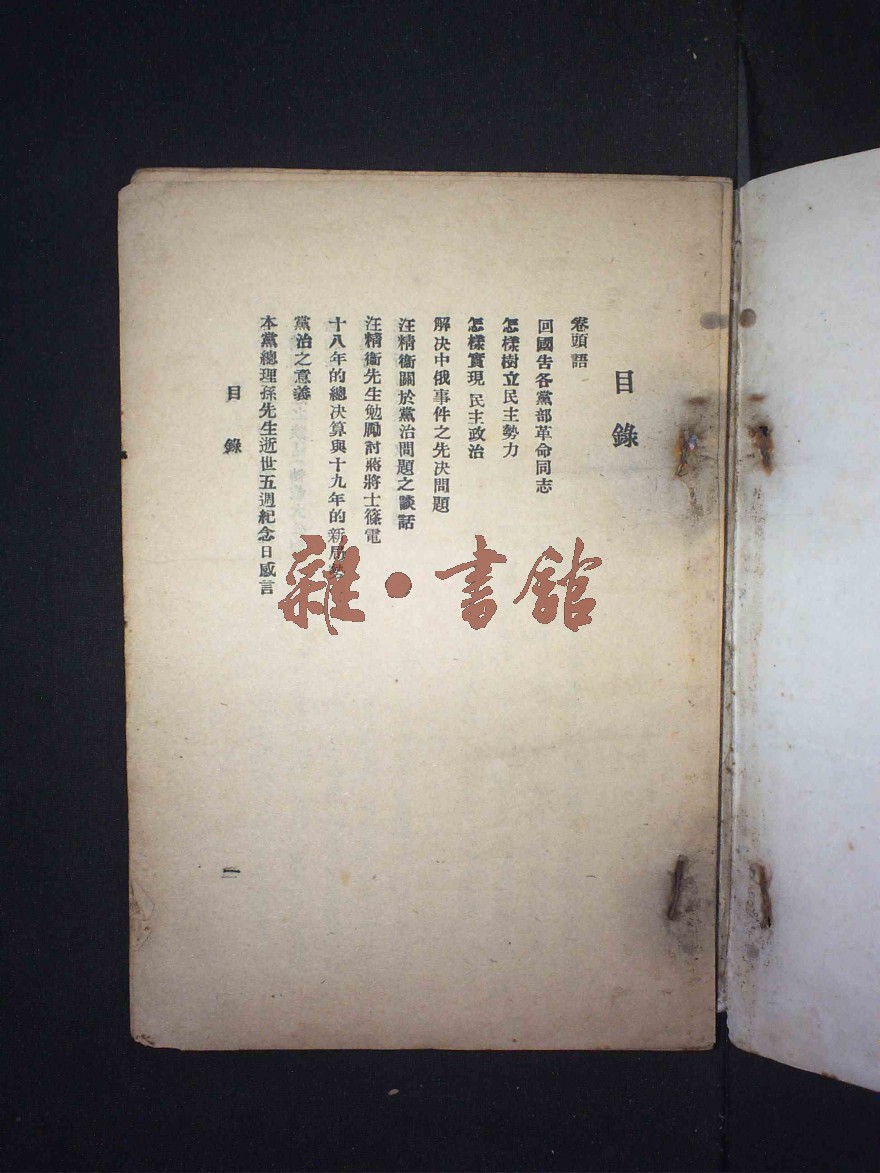 目錄
卷頭語
回國告各黨部革命同志
怎樣樹立民主勢力
怎樣實現民主政治
解決中俄事件之先決問題
汪精衞關於黨治問題之談話
汪精衞先生勉勵討蔣將士篠電
十八年的總决算與十九年的新局勢
黨治之意義
本黨總理孫先生逝世五週紀念日感言
目錄
一
雜·書館